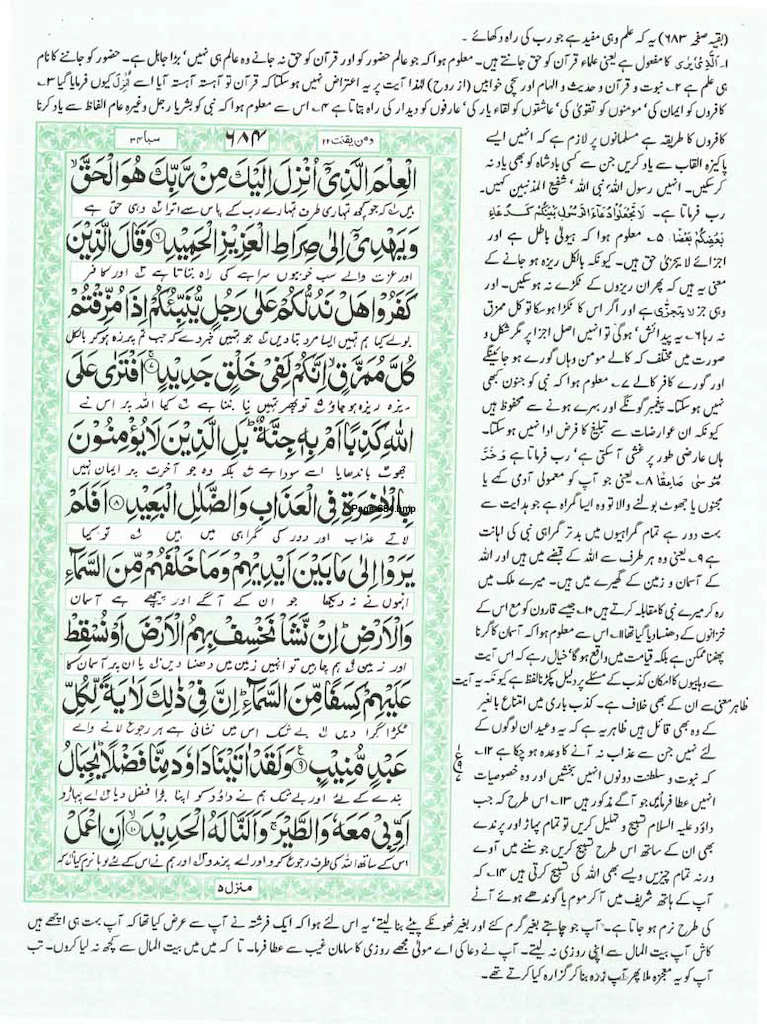 (بقیہ صفحہ ۶۸۳) یہ کہ علم وہی مفید ہے جو رب کی راہ دکھائے۔
۱۔ اَلَّذِیْ یَرٰی کا مفعول ہے یعنی علماء قرآن کو حق جانتے ہیں۔ معلوم ہوا کہ جو عالم حضور کو اور قرآن کو حق نہ جانے وہ عالم ہی نہیں' بڑا جاہل ہے۔ حضور کو جاننے کا نام
ہی علم ہے ۲۔ نبوت و قرآن و حدیث و الہام اور سچی خوابیں (از روح) لہٰذا آیت پر یہ اعتراض نہیں ہو سکتا کہ قرآن تو آہستہ آہستہ آیا اسے اُنْزِلَ کیوں فرمایا گیا ۳۔
کافروں کو ایمان کی' مومنوں کو تقویٰ کی' عاشقوں کو لقاء یار کی' عارفوں کو دیدار کی راہ بتاتا ہے ۴۔ اس سے معلوم ہوا کہ نبی کو بشر یا رجل وغیرہ عام الفاظ سے یاد کرنا
کافروں کا طریقہ ہے مسلمانوں پر لازم ہے کہ انہیں ایسے
پاکیزہ القاب سے یاد کریں جن سے کسی بادشاہ کو بھی یاد نہ
کر سکیں۔ انہیں رسول اللہ' نبی اللہ' شفیع المذنبین کہیں۔
رب فرماتا ہے۔ لَا تَجْعَلُوْا دُعَآءَ الرَّسُوْلِ بَیْنَكُمْ كَدُعَآءِ
بَعْضِكُمْ بَعْضًا۔ ۵۔ معلوم ہوا کہ ہیولیٰ باطل ہے اور
اجزائے لایجزیٰ حق ہیں۔ کیونکہ بالکل ریزہ ہو جانے کے
معنی یہ ہیں کہ پھر ان ریزوں کے ٹکڑے نہ ہو سکیں۔ اور
وہی جزلایتجزی ہے اور اگر اس کا ٹکڑا ہو سکا تو کل ممزق
نہ رہا ۶۔ یہ پیدائش' ہو گی تو انہیں اصل اجزا پر مگر شکل و
صورت میں مختلف کہ کالے مومن وہاں گورے ہو جائینگے
اور گورے کافر کالے ۷۔ معلوم ہوا کہ نبی کو جنون بھی
نہیں ہو سکتا۔ پیغمبر گونگے اور بہرے ہونے سے محفوظ ہیں
کیونکہ ان عوارضات سے تبلیغ کا فرض ادا نہیں ہو سکتا۔
ہاں عارضی طور پر غشی آ سکتی ہے' رب فرماتا ہے وَخَرَّ
مُوْسٰی صَعِقًا ۸۔ یعنی جو آپ کو معمولی آدمی کہے یا
مجنوں یا جھوٹ بولنے والا تو وہ ایسا گمراہ ہے جو ہدایت سے
بہت دور ہے تمام گمراہیوں میں بدتر گمراہی نبی کی اہانت
ہے ۹۔ یعنی وہ ہر طرف سے اللہ کے قبضے میں ہیں اور اللہ
کے آسمان و زمین کے گھیرے میں ہیں۔ میرے ملک میں
رہ کر میرے نبی کا مقابلہ کرتے ہیں ۱۰۔ جیسے قارون کو مع اس کے
خزانوں کے دھنسا دیا گیا تھا ۱۱۔ اس سے معلوم ہوا کہ آسمان کا گرنا
پھٹنا ممکن ہے بلکہ قیامت میں واقع ہو گا' خیال رہے کہ اس آیت
سے وہابیوں کا امکان کذب کے مسئلے پر دلیل پکڑنا غلط ہے کیونکہ یہ آیت
ظاہر معنی سے ان کے بھی خلاف ہے۔ کذب باری میں امتناع بالغیر
کے وہ بھی قائل ہیں ظاہر یہ ہے کہ یہ وعید ان لوگوں کے
لئے نہیں جن سے عذاب نہ آنے کا وعدہ ہو چکا ہے ۱۲۔
کہ نبوت و سلطنت دونوں انہیں بخشیں اور وہ خصوصیات
انہیں عطا فرمائیں جو آگے مذکور ہیں ۱۳۔ اس طرح کہ جب
داؤد علیہ السلام تسبیح و تہلیل کریں تو تمام پہاڑ اور پرندے
بھی ان کے ساتھ اس طرح تسبیح کریں جو سننے میں آوے
ورنہ تمام چیزیں ویسے بھی اللہ کی تسبیح کرتی ہیں ۱۴۔ کہ
آپ کے ہاتھ شریف میں آ کر موم یا گوندھے ہوئے آٹے
کی طرح نرم ہو جاتا ہے۔ آپ جو چاہتے بغیر گرم کئے اور بغیر ٹھونکے پیٹے بنا لیتے' یہ اس لئے ہوا کہ ایک فرشتہ نے آپ سے عرض کیا تھا کہ آپ بہت ہی اچھے ہیں
کاش آپ بیت المال سے اپنی روزی نہ لیتے۔ آپ نے دعا کی اے مولیٰ مجھے روزی کا سامان غیب سے عطا فرما۔ تا کہ میں میں بیت المال سے کچھ نہ لیا کروں۔ تب
آپ کو یہ معجزہ ملا پھر آپ زرہ بنا کر گزارہ کیا کرتے تھے۔
ومن یقنت ۲۲ ۶۸۴ سبا ۳۴
الْعِلْمَ الَّذِیْۤ اُنْزِلَ اِلَیْكَ مِنْ رَّبِّكَ هُوَ الْحَقَّ ۙ
ہیں کہ جو کچھ تمہاری طرف تمہارے رب کے پاس سے اترا وہی حق ہے
وَ یَهْدِیْۤ اِلٰى صِرَاطِ الْعَزِیْزِ الْحَمِیْدِ ۶ وَ قَالَ الَّذِیْنَ
اور عزت والے سب خوبیوں سراہے کی راہ بتاتا ہے اور کافر
كَفَرُوْا هَلْ نَدُلُّكُمْ عَلٰى رَجُلٍ یُّنَبِّئُكُمْ اِذَا مُزِّقْتُمْ
بولے کیا ہم تمہیں ایسا مرد بتا دیں جو تمہیں خبر دے کہ جب تم پرزہ ہو کر بالکل
كُلَّ مُمَزَّقٍ ۙ اِنَّكُمْ لَفِیْ خَلْقٍ جَدِیْدٍ ۷ اَفْتَرٰى عَلَى
ریزہ ریزہ ہو جاؤ تو پھر تمہیں نیا بننا ہے کیا اللہ پر اس نے
اللّٰهِ كَذِبًا اَمْ بِهٖ جِنَّةٌ ؕ بَلِ الَّذِیْنَ لَا یُؤْمِنُوْنَ
جھوٹ باندھا یا اسے سودا ہے بلکہ وہ جو آخرت پر ایمان نہیں
بِالْاٰخِرَةِ فِی الْعَذَابِ وَ الضَّلٰلِ الْبَعِیْدِ ۸ اَفَلَمْ
Page-684.bmp
لاتے عذاب اور دور کی گمراہی میں ہیں تو کیا
یَرَوْا اِلٰى مَا بَیْنَ اَیْدِیْهِمْ وَ مَا خَلْفَهُمْ مِّنَ السَّمَآءِ
انہوں نے نہ دیکھا جو ان کے آگے اور پیچھے ہے آسمان
وَ الْاَرْضِ ؕ اِنْ نَّشَاْ نَخْسِفْ بِهِمُ الْاَرْضَ اَوْ نُسْقِطْ
اور زمین ہم چاہیں تو انہیں زمین میں دھنسا دیں یا ان پر آسمان کا
عَلَیْهِمْ كِسَفًا مِّنَ السَّمَآءِ ؕ اِنَّ فِیْ ذٰلِكَ لَاٰیَةً لِّكُلِّ
ٹکڑا گرا دیں بے شک اس میں نشانی ہے ہر رجوع لانے والے
عَبْدٍ مُّنِیْبٍ ۹ وَ لَقَدْ اٰتَیْنَا دَاوٗدَ مِنَّا فَضْلًا ؕ یٰجِبَالُ
بندے کے لئے اور بے شک ہم نے داؤد کو اپنا بڑا فضل دیا اے پہاڑو
اَوِّبِیْ مَعَهٗ وَ الطَّیْرَ ۚ وَ اَلَنَّا لَهُ الْحَدِیْدَ ۱۰ اَنِ اعْمَلْ
اس کے ساتھ اللہ کی طرف رجوع کرو اور اے پرندو اور ہم نے اس کے لئے لوہا نرم کیا کہ
منزل ۵